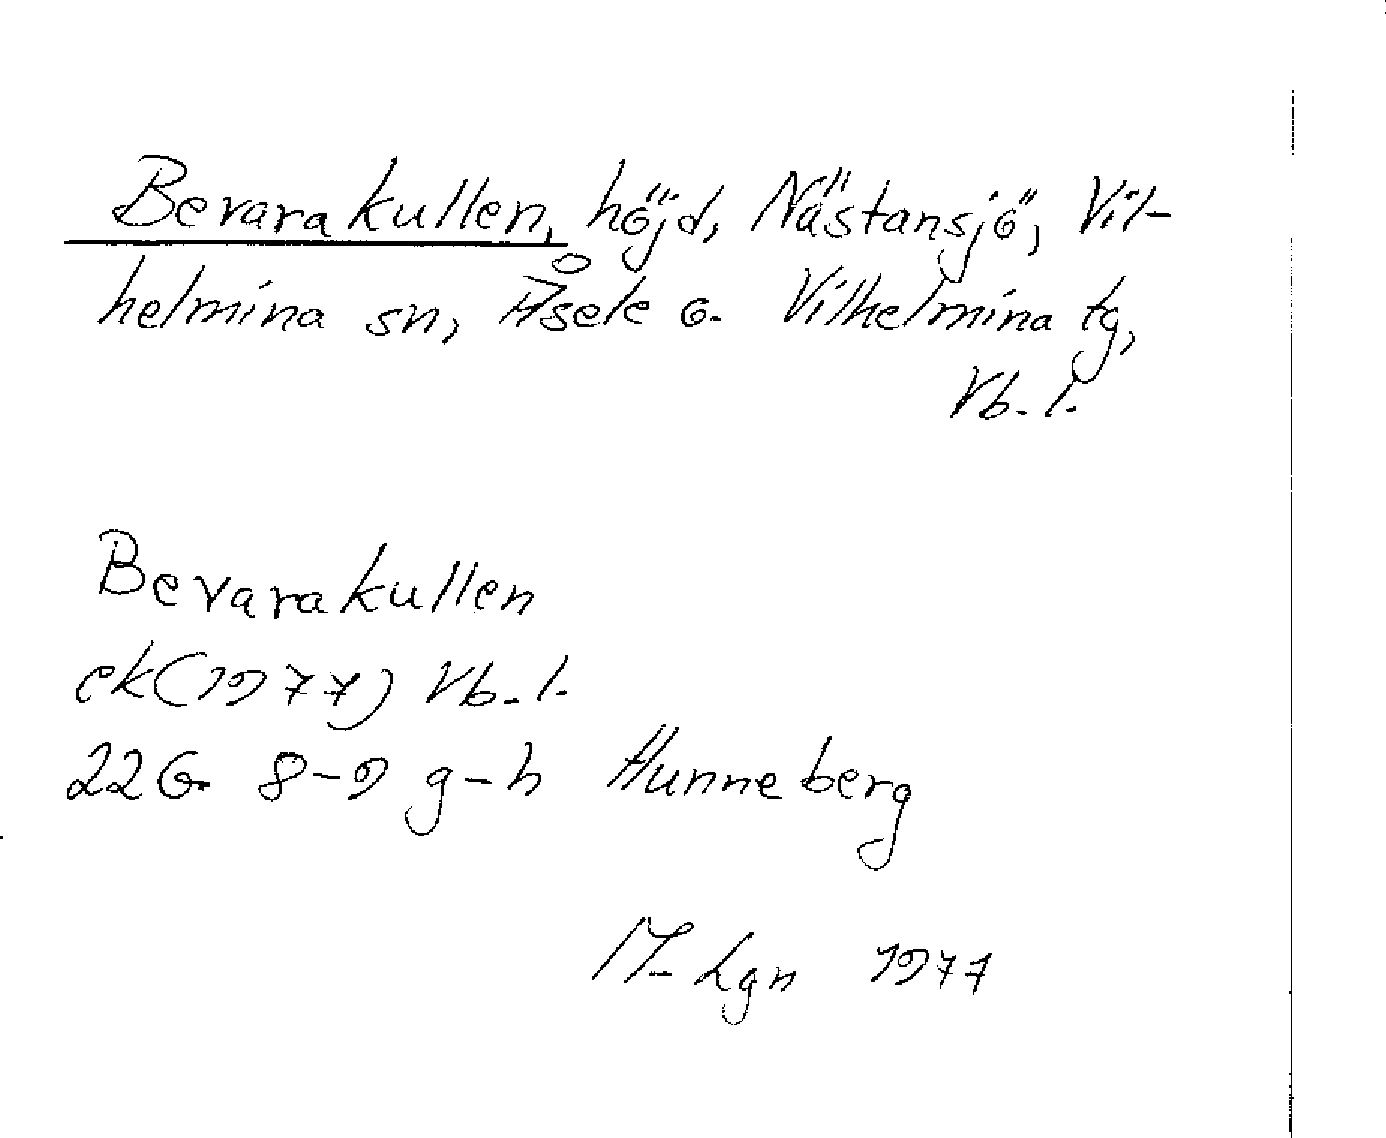 Bevarakullen, höjd, Nästansjö, Vil-
helmina sn, Åsele o. Vilhelmina tg,
Vb. l.
Bevarakullen
ek (1977) Vb. l.
22G 8-9 g-h Hunneberg
M. Lgn 1977